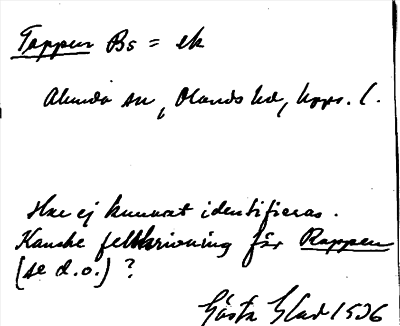 Toppen Bs = ek
Alunda sn, Olands hd, Upps. l.
Har ej kunnat identifieras.
Kanske felskrivning för Roppen
(se d.o.)?
Gösta Glad 1536